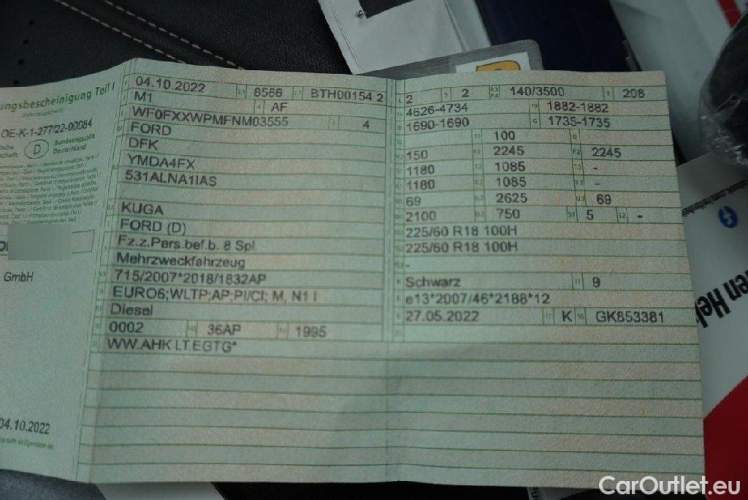 ungsbescheinigung Teil I
OE-K-1-277/22-00084
D Bundesrepublik
Deutschland
GmbH
04.10.2022
04.10.2022 8566 BTH00154 2
M1 AF
WF0FXXWPMFNM03555 4
FORD
DFK
YMDA4FX
531ALNA1IAS
KUGA
FORD (D)
Fz.z.Pers.bef.b. 8 Spl
Mehrzweckfahrzeug
715/2007*2018/1832AP
EURO6;WLTP;AP;PI/CI; M, N1 I
Diesel
0002 36AP 1995
WW.AHK LT.EGTG*
2 2 140/3500 208
4626-4734 1882-1882
1690-1690 1735-1735
100
150 2245 2245
1180 1085 -
1180 1085 -
69 2625 69
2100 750 5 -
225/60 R18 100H
225/60 R18 100H
-
Schwarz 9
e13*2007/46*2188*12
27.05.2022 K GK853381
CarOutlet.eu